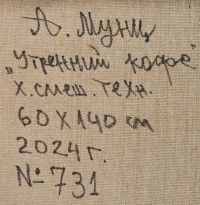 А. Мунц
„Утренний кофе"
х. смеш. техн.
60 х 140 см
2024 г.
№ 731